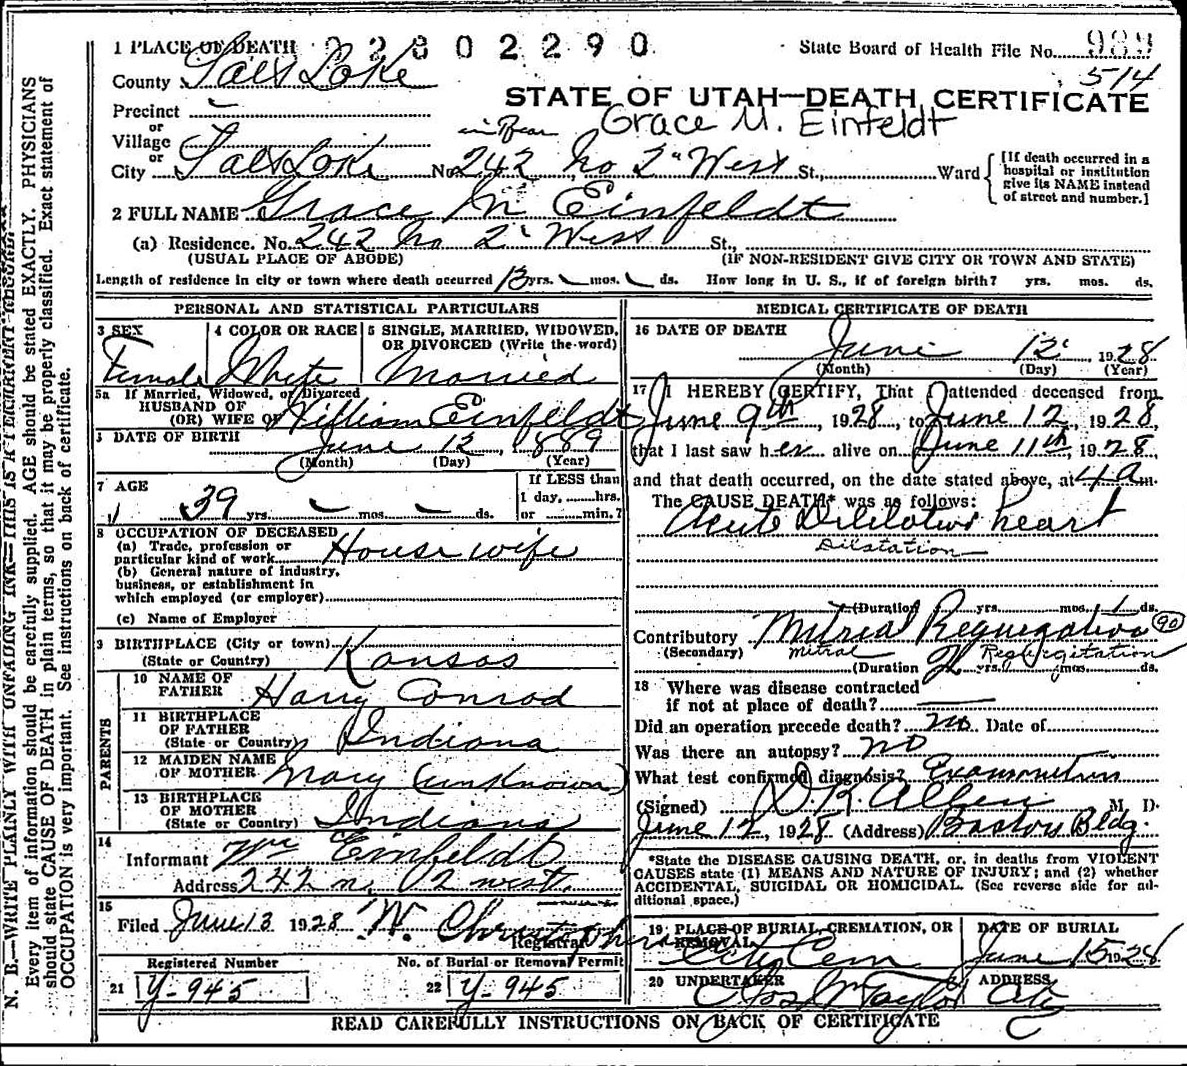 1 PLACE OF DEATH 22802290 State Board of Health File No. 989
514
County Salt Lake
STATE OF UTAH—DEATH CERTIFICATE
Precinct
or
Village in Rear Grace M. Einfeldt
or
City Salt Lake No. 242 No 2" West St., Ward
[If death occurred in a hospital or institution give its NAME instead of street and number.]
2 FULL NAME Grace M Einfeldt
(a) Residence. No. 242 No 2" West St.,
(USUAL PLACE OF ABODE) (IF NON-RESIDENT GIVE CITY OR TOWN AND STATE)
Length of residence in city or town where death occurred 13 yrs. mos. ds. How long in U. S., if of foreign birth? yrs. mos. ds.
PERSONAL AND STATISTICAL PARTICULARS
3 SEX 4 COLOR OR RACE 5 SINGLE, MARRIED, WIDOWED, OR DIVORCED (Write the word)
Female White Married
5a If Married, Widowed, or Divorced
HUSBAND OF
(OR) WIFE OF William Einfeldt
DATE OF BIRTH June 12, 1889
(Month) (Day) (Year)
7 AGE If LESS than
1 day, hrs.
39 yrs mos ds. or min.?
8 OCCUPATION OF DECEASED
(a) Trade, profession or
particular kind of work House wife
(b) General nature of industry,
business, or establishment in
which employed (or employer)
(c) Name of Employer
9 BIRTHPLACE (City or town)
(State or Country) Kansas
PARENTS
10 NAME OF
FATHER Harry Conrod
11 BIRTHPLACE
OF FATHER
(State or Country) Indiana
12 MAIDEN NAME
OF MOTHER Mary (unknown)
13 BIRTHPLACE
OF MOTHER
(State or Country) Indiana
14
Informant Wm Einfeldt
Address 242 n. 2 west.
15
Filed June 13 1928 W. Christopherson
Registrar
Registered Number No. of Burial or Removal Permit
21 Y-945 22 Y-945
MEDICAL CERTIFICATE OF DEATH
16 DATE OF DEATH
June 12 1928
(Month) (Day) (Year)
17 I HEREBY CERTIFY, That I attended deceased from
June 9th, 1928, to June 12, 1928,
that I last saw her alive on June 11th, 1928,
and that death occurred, on the date stated above, at 4 a m.
The CAUSE DEATH* was as follows:
Acute Dilatation heart
Dilatation
(Duration) yrs. mos. 1 ds.
Contributory Mitral Regurgitation 90
(Secondary) mitral Regurgitation
(Duration 2 yrs. mos. ds.
18 Where was disease contracted
if not at place of death?
Did an operation precede death? no Date of
Was there an autopsy? no
What test confirmed diagnosis? Examination
(Signed) D K Allen M. D.
June 12, 1928 (Address) Boston Bldg.
*State the DISEASE CAUSING DEATH, or, in deaths from VIOLENT
CAUSES state (1) MEANS AND NATURE OF INJURY; and (2) whether
ACCIDENTAL, SUICIDAL OR HOMICIDAL. (See reverse side for ad-
ditional space.)
19 PLACE OF BURIAL, CREMATION, OR REMOVAL DATE OF BURIAL
City Cem June 15 1928
20 UNDERTAKER ADDRESS
Jos Wm Taylor City
READ CAREFULLY INSTRUCTIONS ON BACK OF CERTIFICATE
N. B.—WRITE PLAINLY WITH UNFADING INK—THIS IS A PERMANENT RECORD.
Every item of information should be carefully supplied. AGE should be stated EXACTLY. PHYSICIANS
should state CAUSE OF DEATH in plain terms, so that it may be properly classified. Exact statement of
OCCUPATION is very important. See instructions on back of certificate.